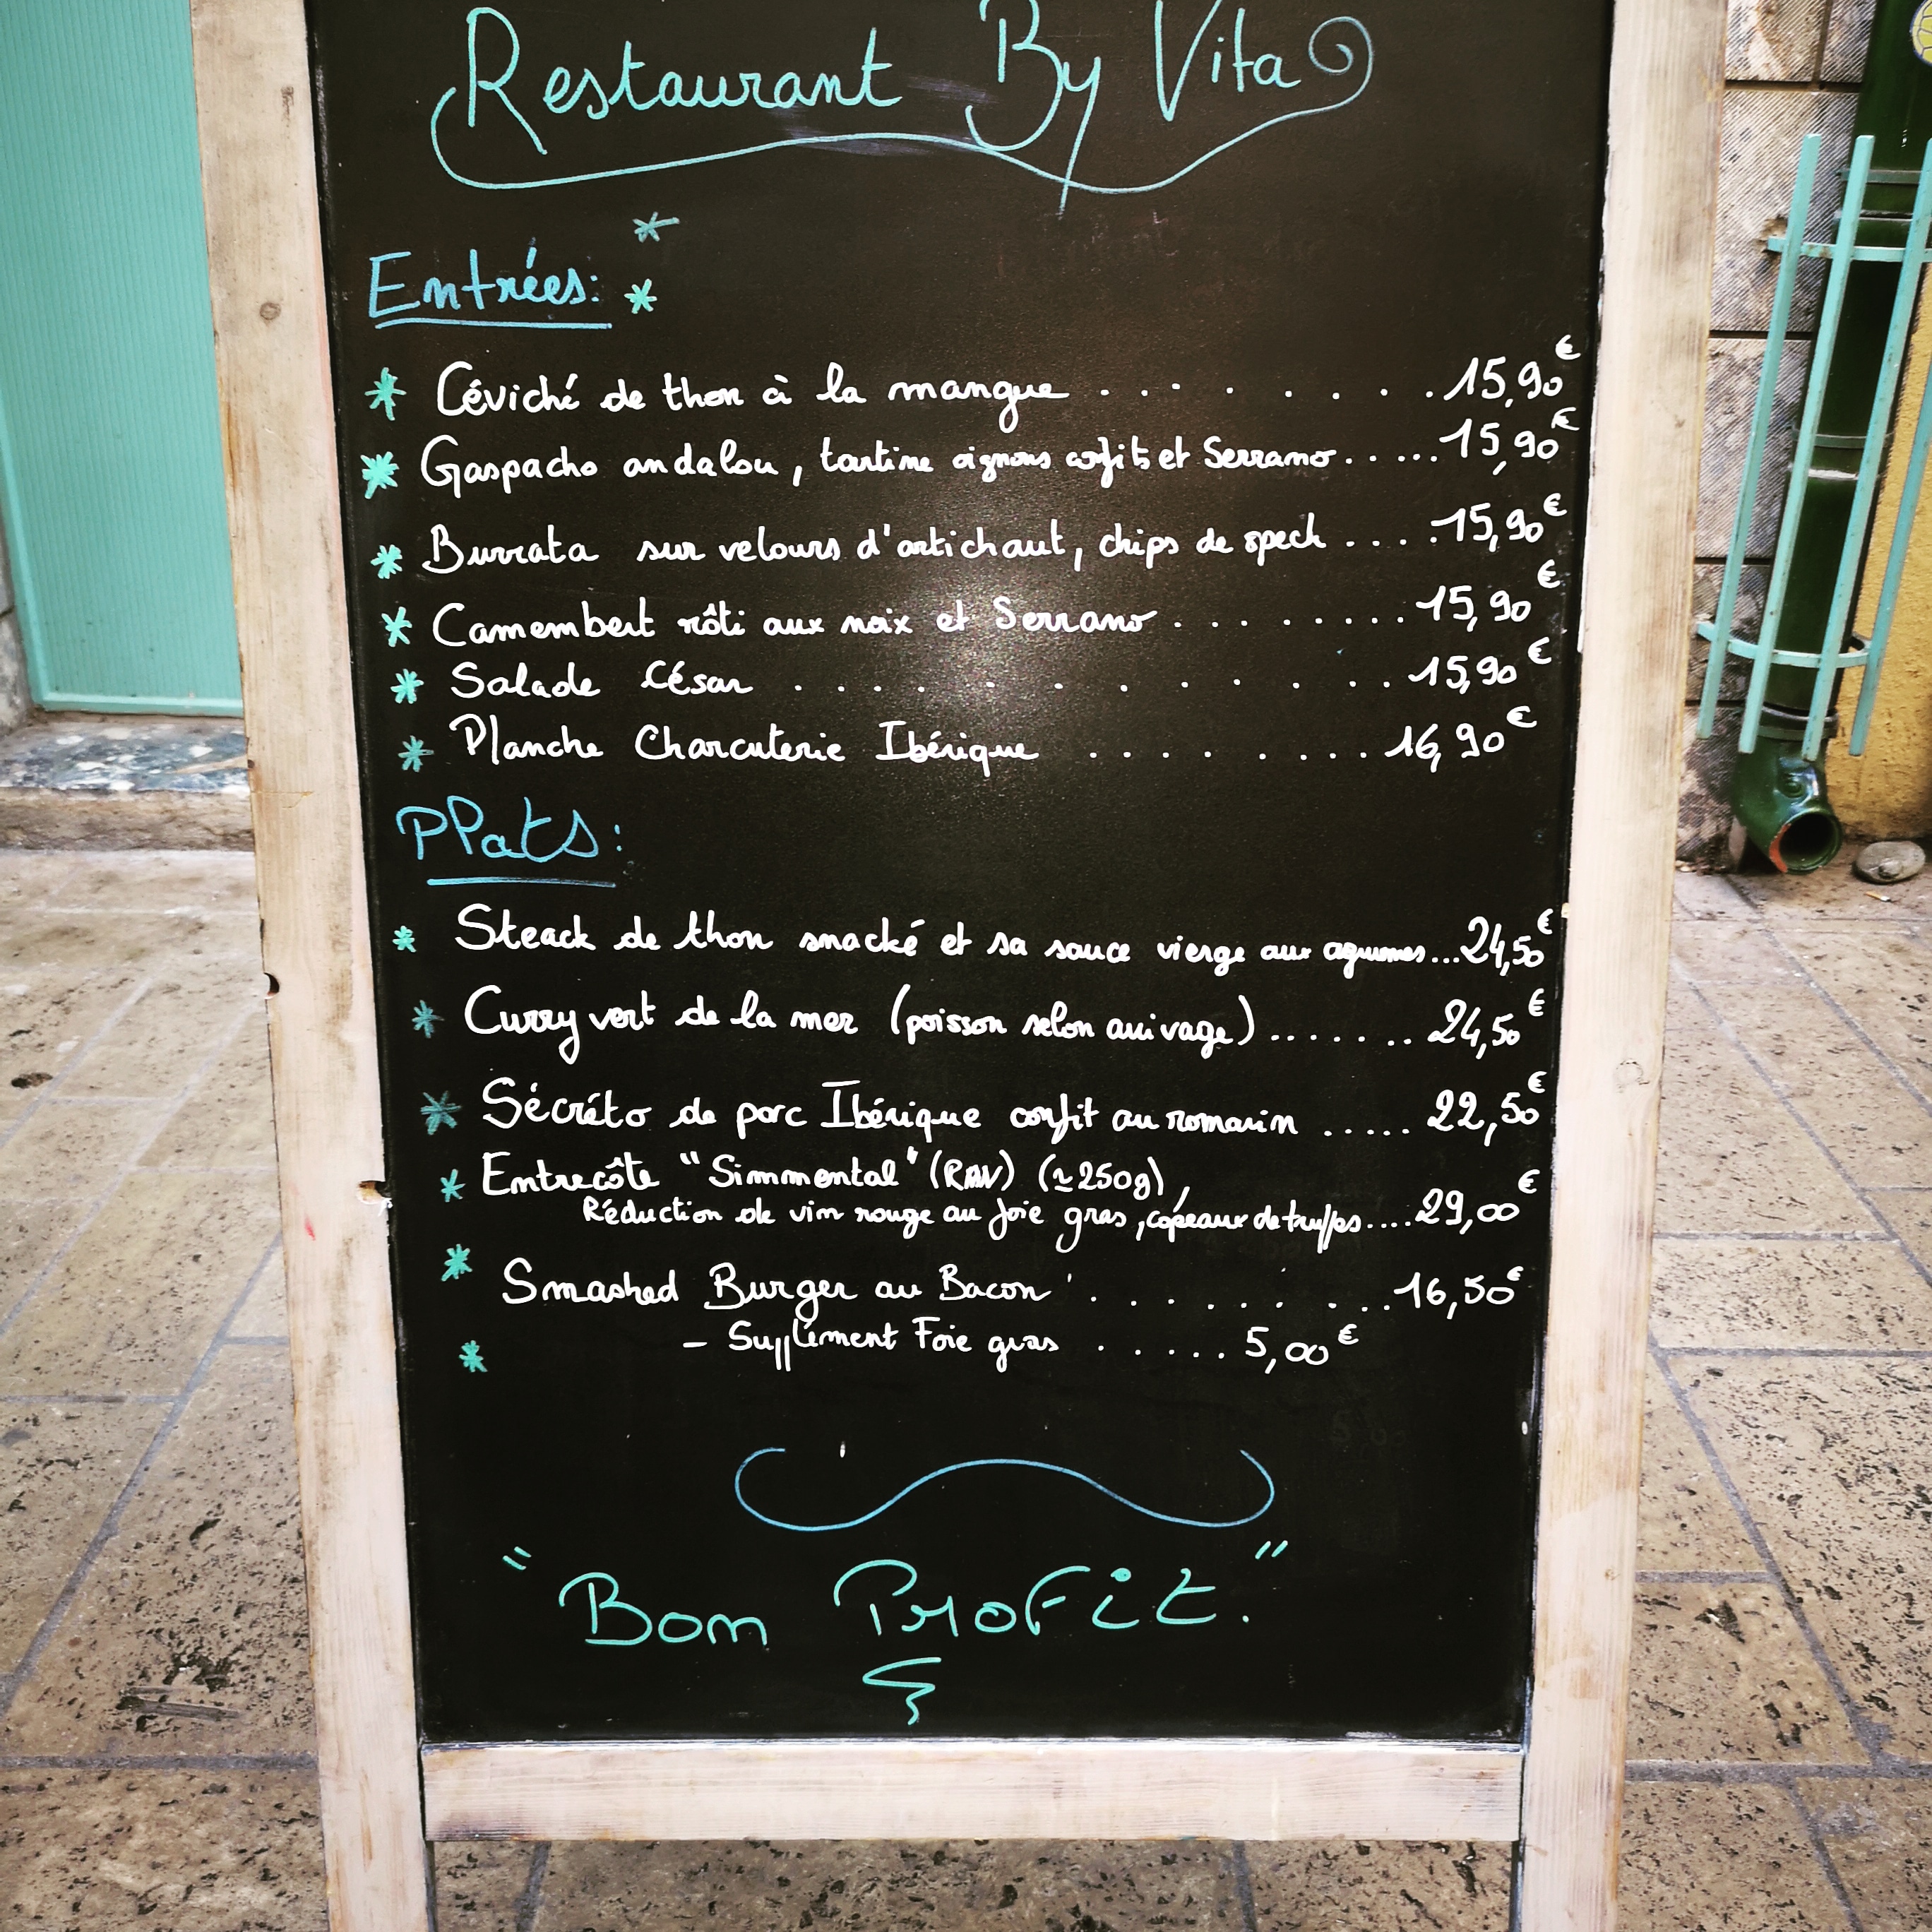 Restaurant By Vita
Entrées:
Céviché de thon à la mangue . . . . . . . . 15,90€
Gaspacho andalou, tartine oignons confits et Serrano ..... 15,90€
Burrata sur velours d'artichaut, chips de speck ..... 15,90€
Camembert rôti aux noix et Serrano ......... 15,90€
Salade César . . . . . . . . . . . . . 15,90€
Planche Charcuterie Ibérique . . . . . . . . 16,90€
Plats:
Steack de thon snacké et sa sauce vierge aux agrumes...24,50€
Curry vert de la mer (poisson selon arrivage) ....... 24,50€
Sécréto de porc Ibérique confit au romarin ..... 22,50€
Entrecôte "Simmental" (RAV) (≃250g),
Réduction de vin rouge au foie gras, copeaux de truffes....29,00€
Smashed Burger au Bacon . . . . . . . . . 16,50€
- Supplément Foie gras . . . . . . 5,00€
"Bon Profit."